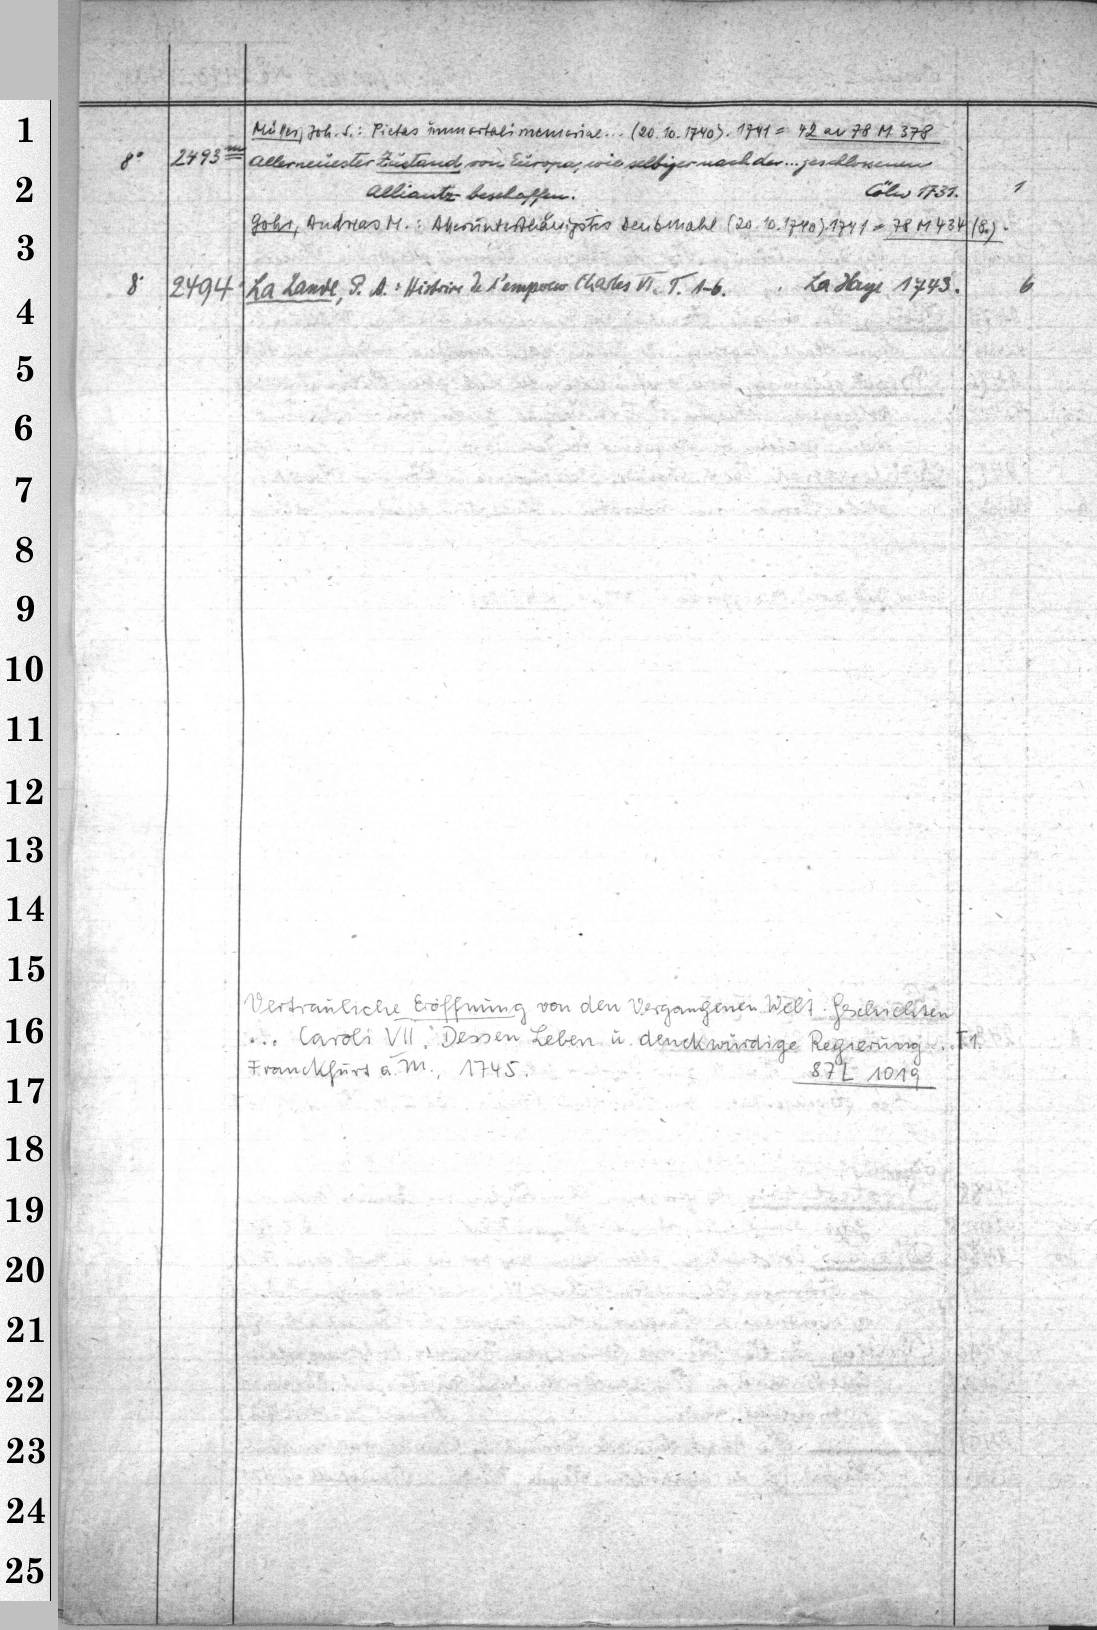 1
Müller, Joh. S.: Pietas immortali memoriae... (20.10.1740). 1741 = 42 an 78 M 378
8° 2493 m Allerneuester Zustand von Europa, wie selbiger nach der ... geschlossenen
2
Alliantz beschaffen. Cöln 1731. 1
3
Gohr, Andreas M.: Allerunterthänigstes Denkmahl (20.10.1740). 1741 = 78 M 434 (8.).
8° 2494 La Lande, P. A.: Histoire de l'empereur Charles VI. T. 1-6. La Haye 1743. 6
4
5
6
7
8
9
10
11
12
13
14
15
Vertrauliche Eröffnung von den Vergangenen Welt-Geschichten
16
... Caroli VII. Dessen Leben u. denckwürdige Regierung... T1.
Franckfurt a. M., 1745. 87 L 1019
17
18
19
20
21
22
23
24
25